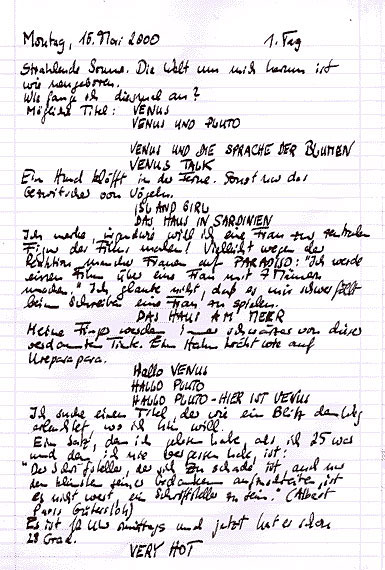 Montag, 15. Mai 2000 1. Tag
Strahlende Sonne. Die Welt um mich herum ist
wie neugeboren.
Wie fange ich diesmal an?
Mögliche Titel: VENUS
VENUS UND PLUTO
VENUS UND DIE SPRACHE DER BLUMEN
VENUS TALK
Ein Hund kläfft in der Ferne. Sonst nur das
Gezwitscher von Vögeln.
ISLAND GIRL
DAS HAUS IN SARDINIEN
Ich merke, irgendwie will ich eine Frau zur zentralen
Figur des Films machen! Vielleicht wegen der
Reaktion mancher Frauen auf PARADISO: "Ich werde
einen Film über eine Frau mit 7 Männern
machen." Ich glaube nicht, daß es mir schwer fällt
beim Schreiben eine Frau zu spielen.
DAS HAUS AM MEER
Meine Finger werden immer schwärzer von dieser
verdammten Tinte. Ein Hahn kräht
Hallo VENUS
HALLO PLUTO
HALLO PLUTO - HIER IST VENUS
Ich suche einen Titel der wie ein Blitz den Weg
erleuchtet, wo ich hin will.
Ein Satz, den ich gelesen habe, als ich 25 war
und den ich nie vergessen habe, ist:
"Der Schriftsteller, der sich zu schade ist, auch nur
den kleinsten seiner Gedanken aufzuschreiben, ist
es nicht wert, ein Schriftsteller zu sein." (Albert
Paris Gütersloh)
Es ist Uhr mittags und jetzt hat es schon
28 Grad.
VERY HOT